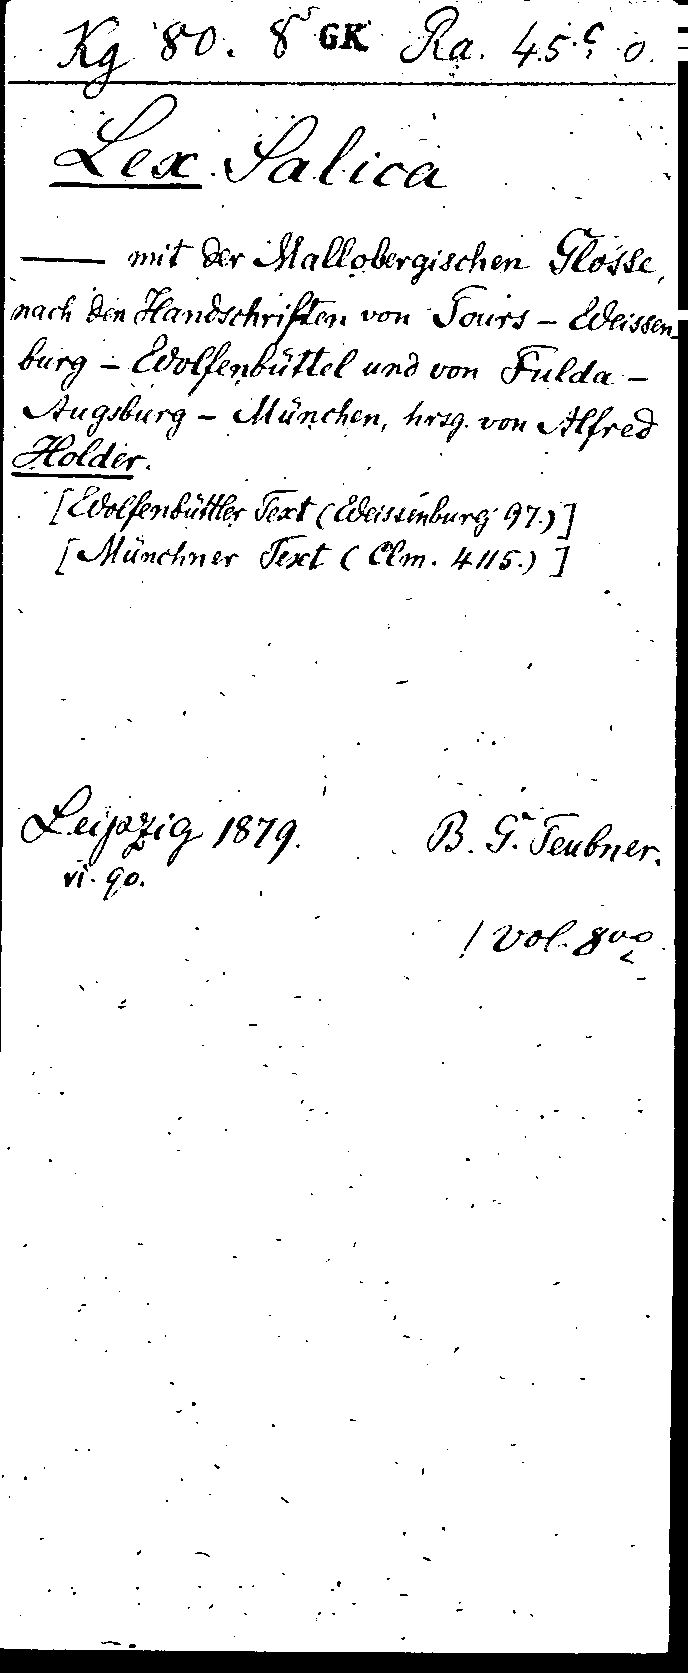 Kg 80. 8 GK Ra. 45.c o.
Lex Salica
—— mit der Mallobergischen Glosse,
nach den Handschriften von Tours – Weissen-
burg – Wolfenbüttel und von Fulda –
Augsburg – München, hrsg. von Alfred
Holder.
[Wolfenbüttler Text (Weissenburg 97.)]
[Münchner Text (Clm. 4115.)]
Leipzig 1879. B. G. Teubner.
vi. 90.
1 vol. 8vo